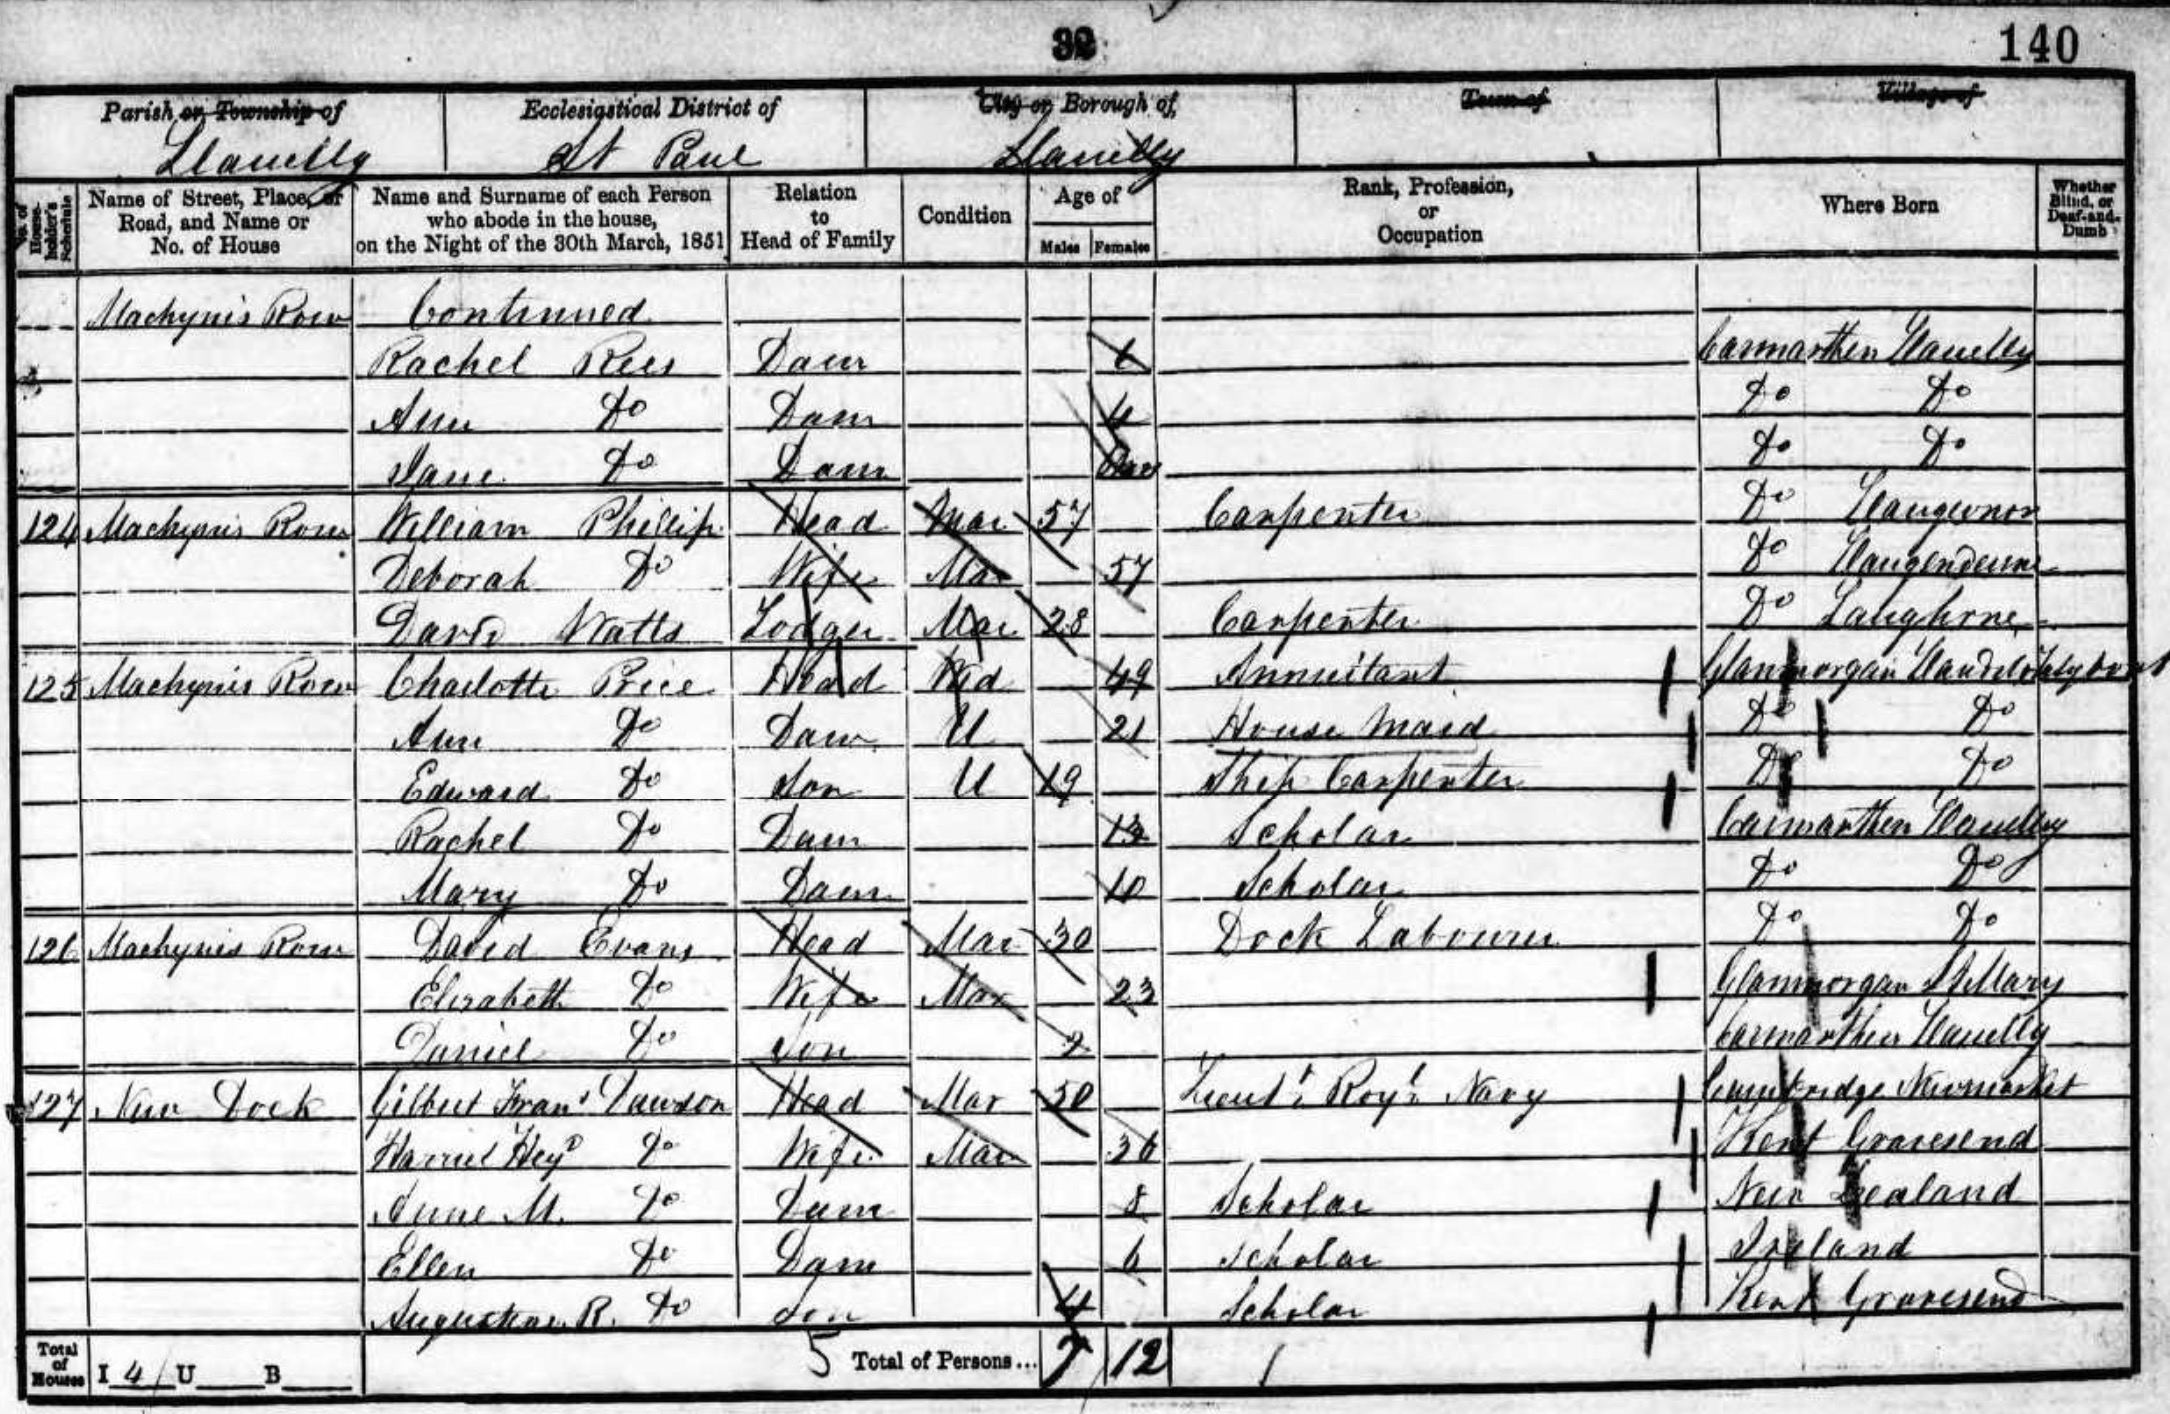 39 140
Parish or Township of Ecclesiastical District of City or Borough of Town of Village of
Llanelly St Paul Llanelly
No. of House-holder's Schedule Name of Street, Place, or Road, and Name or No. of House Name and Surname of each Person who abode in the house, on the Night of the 30th March, 1851 Relation to Head of Family Condition Age of Males Females Rank, Profession, or Occupation Where Born Whether Blind, or Deaf-and-Dumb
Machynis Row Continued
Rachel Rees Daur 6 Carmarthen Llanelly
Ann Do Daur 4 Do Do
Jane Do Daur Do Do
124 Machynis Row William Phillip Head Mar 57 Carpenter Do
Deborah Do Wife Mar 57 Do Llangendeirne
David Watts Lodger Mar 28 Carpenter Do Laugharne
125 Machynis Row Charlotte Price Head Wid 49 Annuitant Glanmorgan
Ann Do Daur U 21 House Maid Do Do
Edward Do Son U 19 Ship Carpenter Do Do
Rachel Do Daur 13 Scholar Carmarthen Llanelly
Mary Do Daur 10 Scholar Do Do
126 Machynis Row David Evans Head Mar 30 Dock Labourer Do Do
Elizabeth Do Wife Mar 23 Glanmorgan St Mary
Daniel Do Son 2 Carmarthen Llanelly
127 New Dock Gilbert Frans Dawson Head Mar 50 Lieut. Royl. Navy Cambridge Newmarket
Harriet Heyd Do Wife Mar 36 Kent Gravesend
Anne M. Do Daur 8 Scholar New Zealand
Ellen Do Daur 6 Scholar Ireland
Augustus R. Do Son 4 Scholar Kent Gravesend
Total of Houses I 4 U B 5 Total of Persons... 7 12